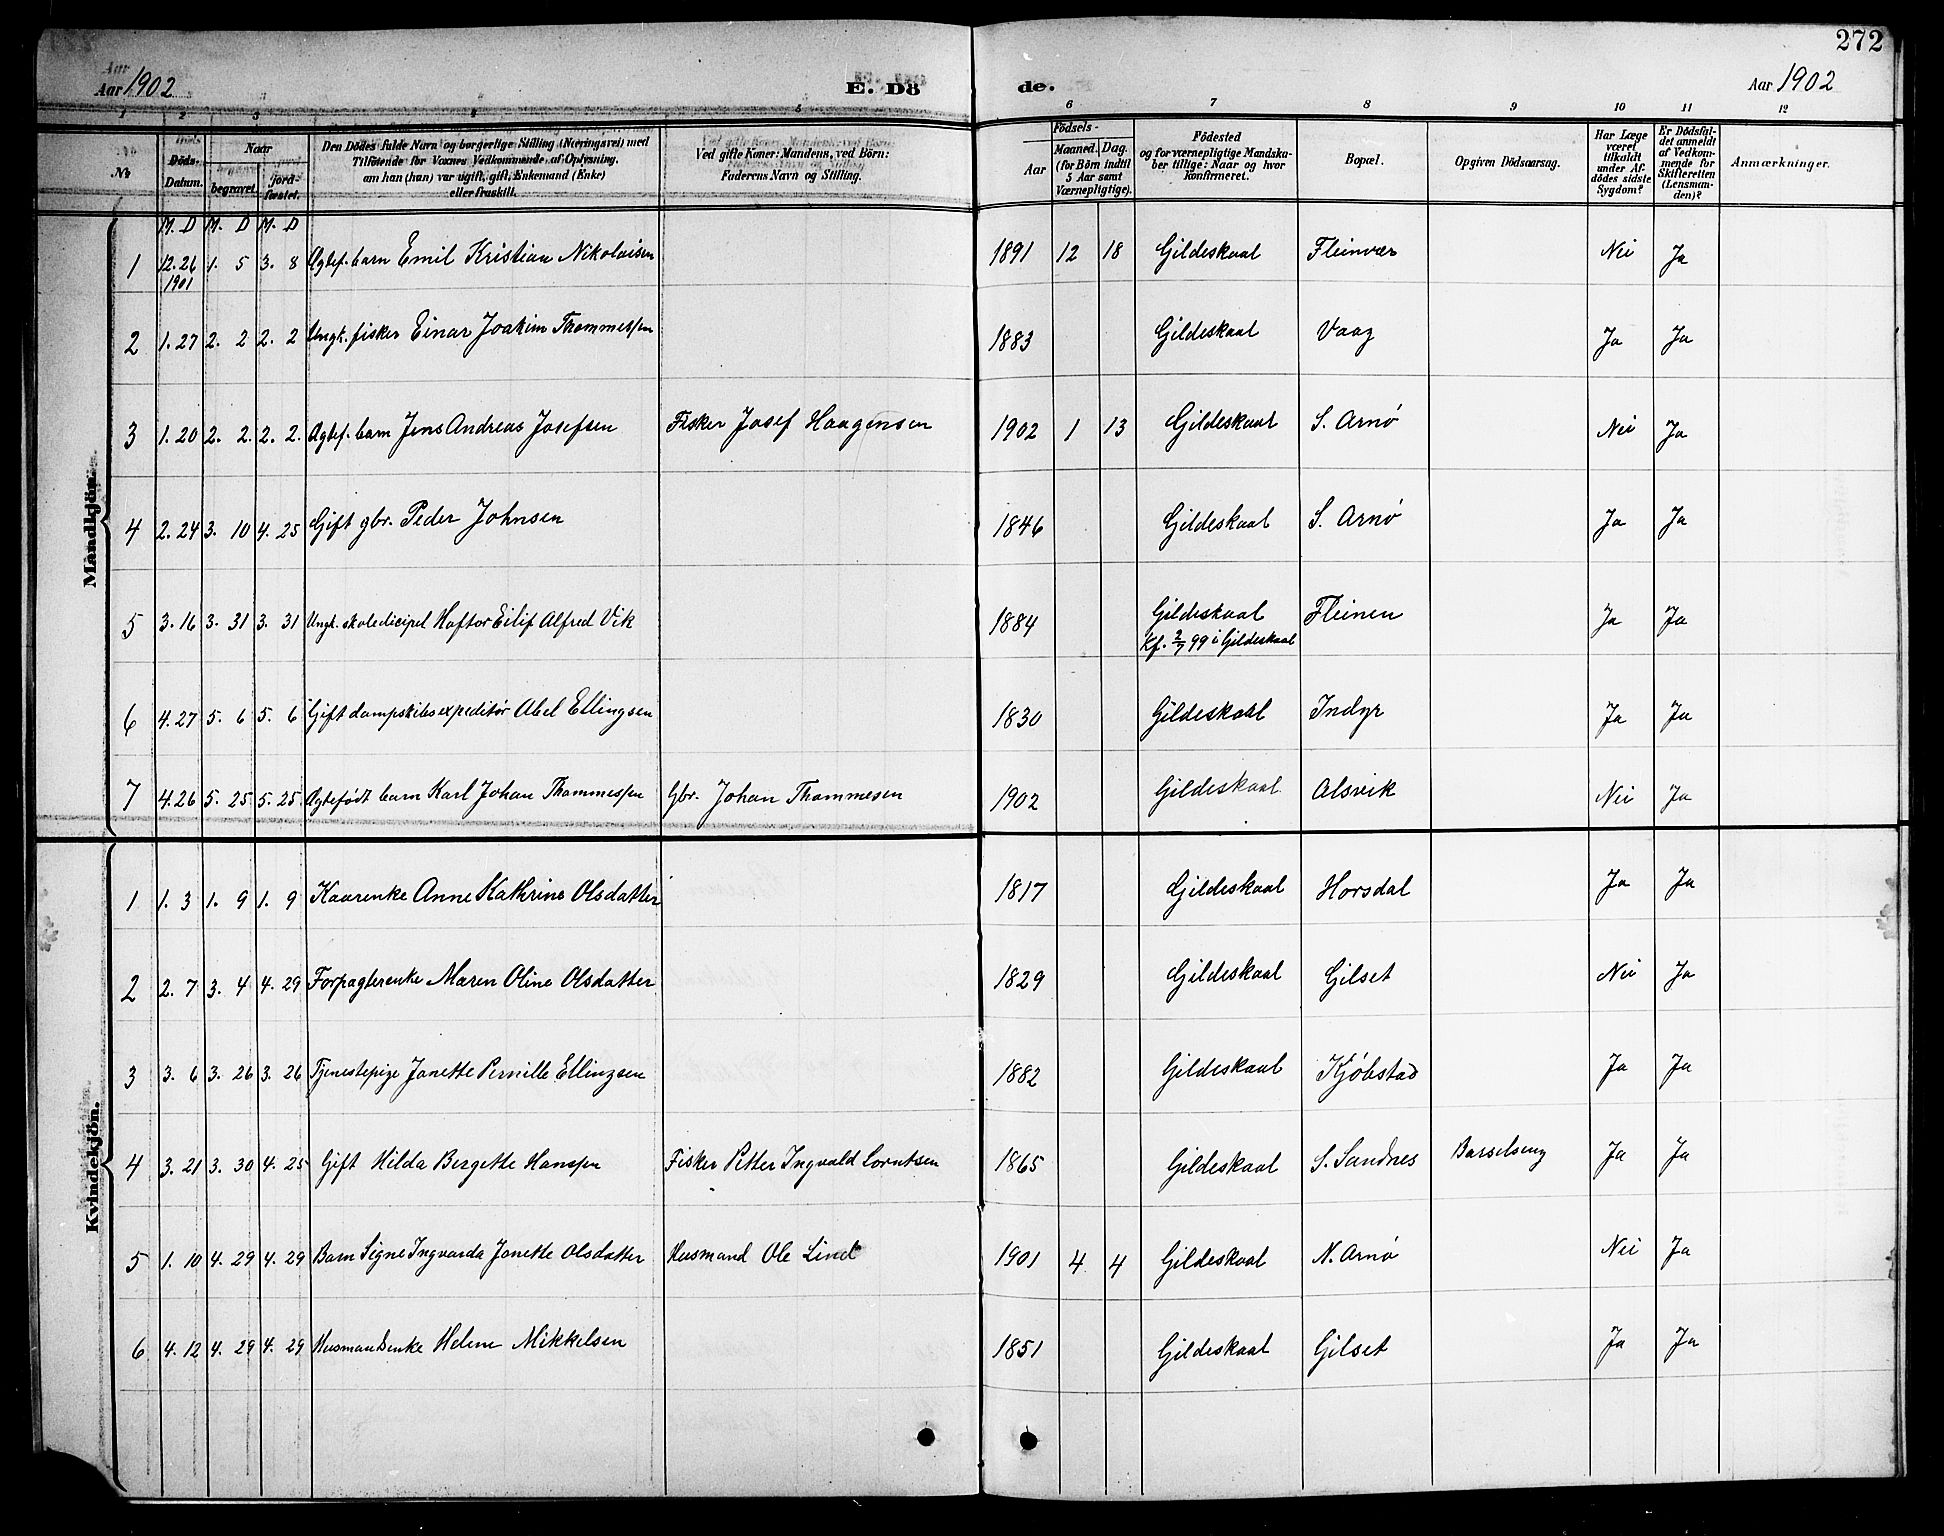 272
Aar 1902 E. Dö de. Aar 1902
1 2 3 4 5 6 7 8 9 10 11 12
№
Döds-Datum.
Naar
begravet. jordfæstet.
Den Dödes fulde Navn og borgerlige Stilling (Næringsvei) med
Tilföiende for Voxnes Vedkommende af Oplysning,
om han (hun) var ugift, gift, Enkemand (Enke)
eller fraskilt.
Ved gifte Koner: Mandens, ved Börn:
Faderens Navn og Stilling.
Födsels-
Aar Maaned. Dag.
(for Börn indtil
5 Aar samt
Værnepligtige).
Födested
og for værnepligtige Mandskaber tillige: Naar og hvor
Konfirmeret.
Bopæl.
Opgiven Dödsaarsag.
Har Læge
været
tilkaldt
under Afdödes sidste
Sygdom?
Er Dödsfaldet anmeldt
af Vedkommende for
Skifteretten
(Lensmanden)?
Anmærkninger.
Mandkjön.
M. D M. D M. D
1 12.26 1901 1. 5 3. 8 Ægtef. barn Emil Kristian Nikolaisen 1891 12 18 Gildeskaal Fleinvær Nei Ja
2 1.27 2. 2 2. 2 Ungk. fisker Einar Joakim Thommessen 1883 Gildeskaal Vaag Ja Ja
3 1.20 2. 2. 2. 2. Ægtef. barn Jens Andreas Josefsen Fisker Josef Haagensen 1902 1 13 Gildeskaal S. Arnø Nei Ja
4 2.24 3. 10 4. 25 Gift gbr. Peder Johnsen 1846 Gildeskaal S. Arnø Ja Ja
5 3.16 3. 31 3. 31 Ungk. skoledicipel Haftor Eilif Alfred Vik 1884 Gildeskaal Fleinen Ja Ja
Kf. 2/7 99 i Gildeskaal
6 4.27 5. 6 5. 6 Gift dampskibsexpeditør Abel Ellingsen 1830 Gildeskaal Indyr Ja Ja
7 4.26 5. 25 5. 25 Ægtefødt barn Karl Johan Thommessen Gbr. Johan Thommesen 1902 Gildeskaal Alsvik Nei Ja
Kvindekjön.
1 1. 3 1. 9 1. 9 Kaarenke Anne Kathrine Olsdatter 1817 Gildeskaal Horsdal Ja Ja
2 2. 7 3. 4 4. 29 Forpagterenke Maren Oline Olsdatter 1829 Gildeskaal Gilset Nei Ja
3 3. 6 3. 26 3. 26 Tjenestepige Janette Pernille Ellingsen 1882 Gildeskaal Kjøbstad Ja Ja
4 3. 21 3. 30 4. 25 Gift Hilda Bergette Hanssen Fisker Petter Ingvald Lorntsen 1865 Gildeskaal S. Sandnes Barselseng Ja Ja
5 1. 10 4. 29 4. 29 Barn Signe Ingvarda Janette Olsdatter Husmand Ole Lind 1901 4 4 Gildeskaal N. Arnø Nei Ja
6 4. 12 4. 29 4. 29 Husmandsenke Helene Mikkelsen 1851 Gildeskaal Gilset Ja Ja